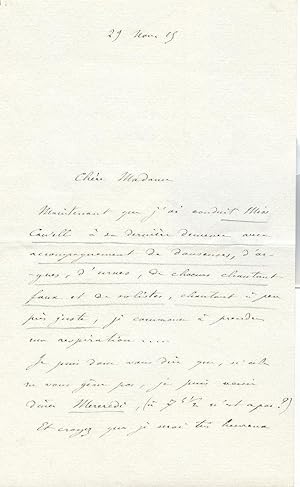 29 Nov. 15
Chère Madame
Maintenant que j'ai conduit Miss
Cavell à sa dernière demeure avec
accompagnement de danseuses, d'or-
gues, d'urnes, de chœurs chantant
faux et de solistes, chantant à peu
près juste, je commence à prendre
ma respiration....
Je puis donc vous dire que, si cela
ne vous gêne pas, je puis venir
dîner Mercredi, (à 7 h 1/2 n'est-ce pas?)
Et croyez que je serai très heureux